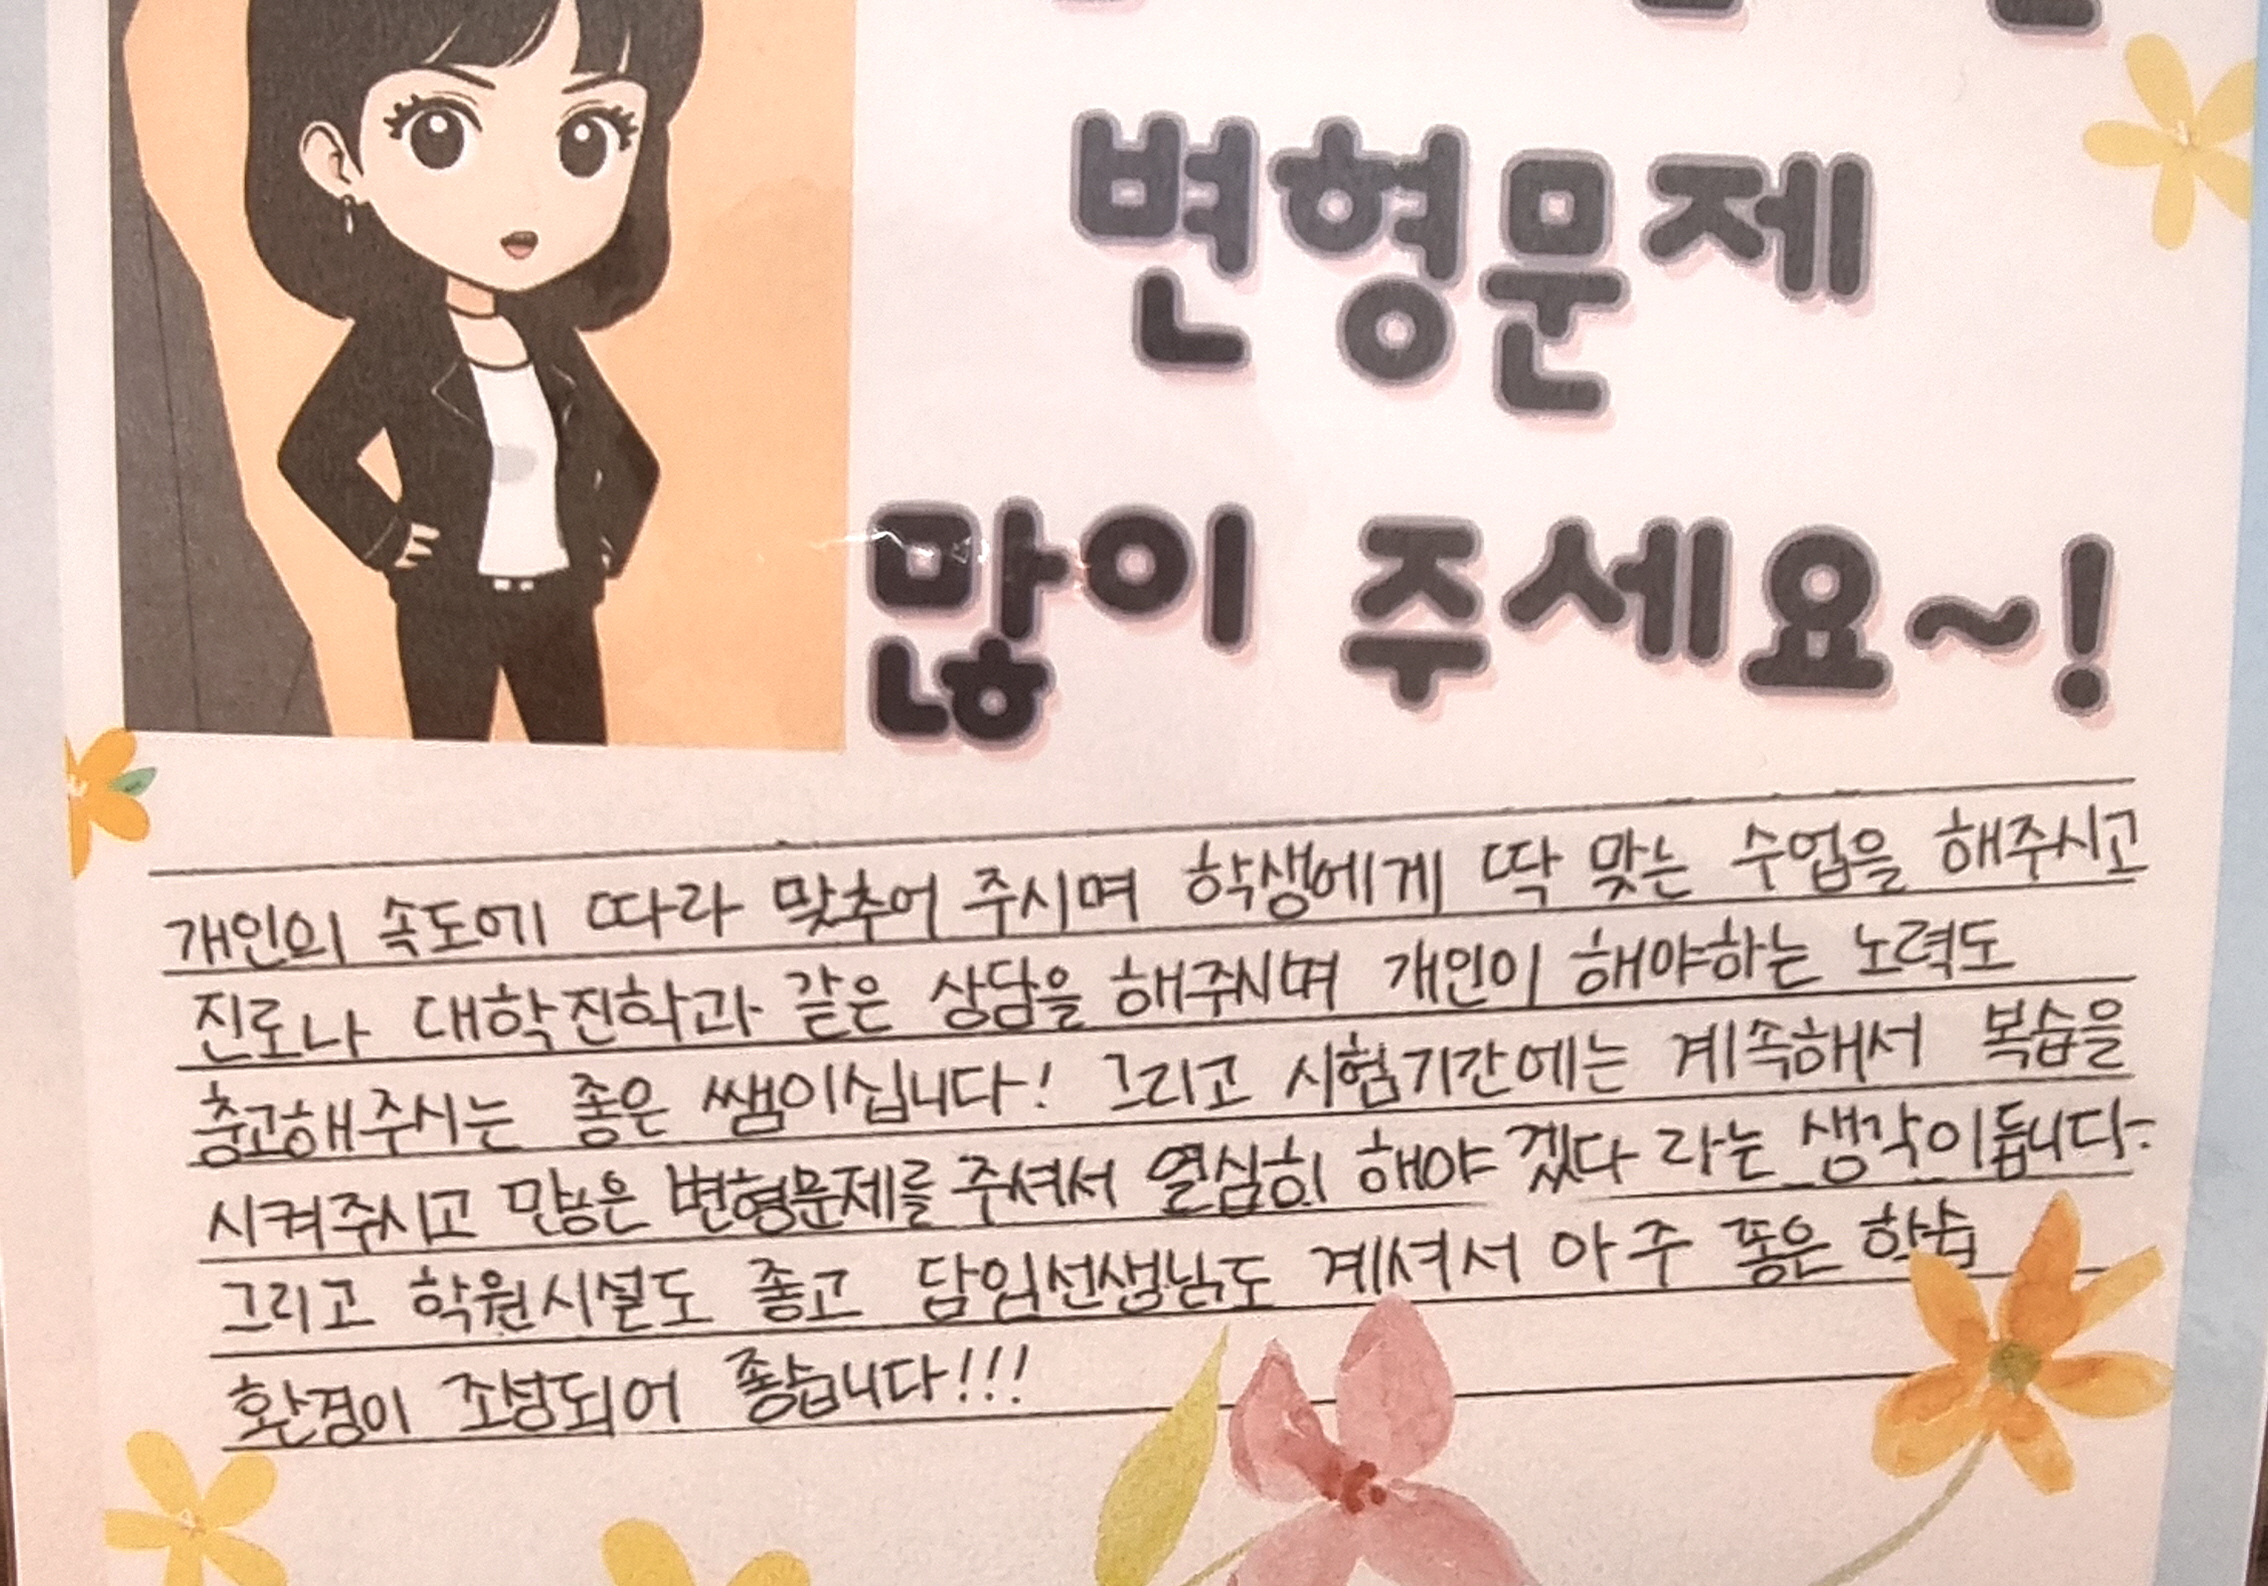 변형문제
많이 주세요~!
개인의 속도에 따라 맞추어 주시며 학생에게 딱 맞는 수업을 해주시고
진로나 대학진학과 같은 상담을 해주시며 개인이 해야하는 노력도
충고해주시는 좋은 쌤이십니다! 그리고 시험기간에는 계속해서 복습을
시켜주시고 많은 변형문제를 주셔서 열심히 해야겠다 라는 생각이듭니다.
그리고 학원시설도 좋고 담임선생님도 계셔서 아주 좋은 학습
환경이 조성되어 좋습니다!!!